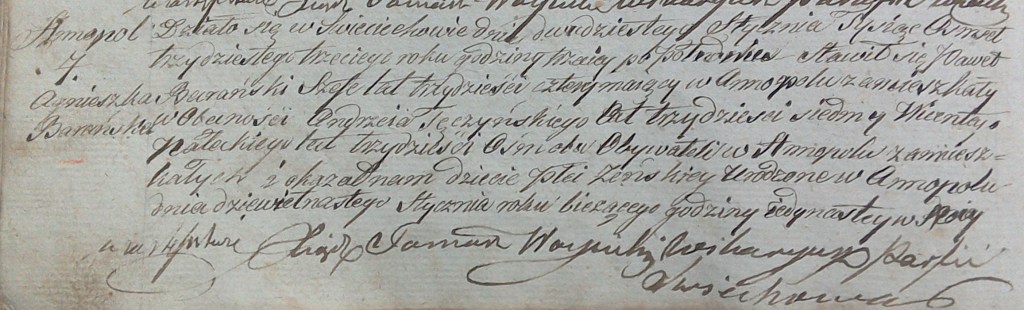 Xiądz Tamasz Woycicki Wikaryusz
Annopol Działo się w Świeciechowie dnia dwudziestego Stycznia Tysiąc Osmset
7. trzydziestego trzeciego roku godziny trzeciej po południu Stawił się Paweł
Agnieszka Barański Szefc lat trzydzieści cztery maiący w Annopolu zamieszkały
Barańska w Obecności Andrzeia Tęczyńskiego lat trzydzieści siedm y Wicentego
Pałeckiego lat trzydzieści Ośm obu Obywateli w Annopolu zamiesz=
kałych i okazał nam dziecie płci Zeńskiey urodzone w Annopolu
dnia dziewietnastego Stycznia roku bieżącego godziny iedynastey w
Xiądz Tamasz Woycicki Wikaryusz Parfii
Swiechowa